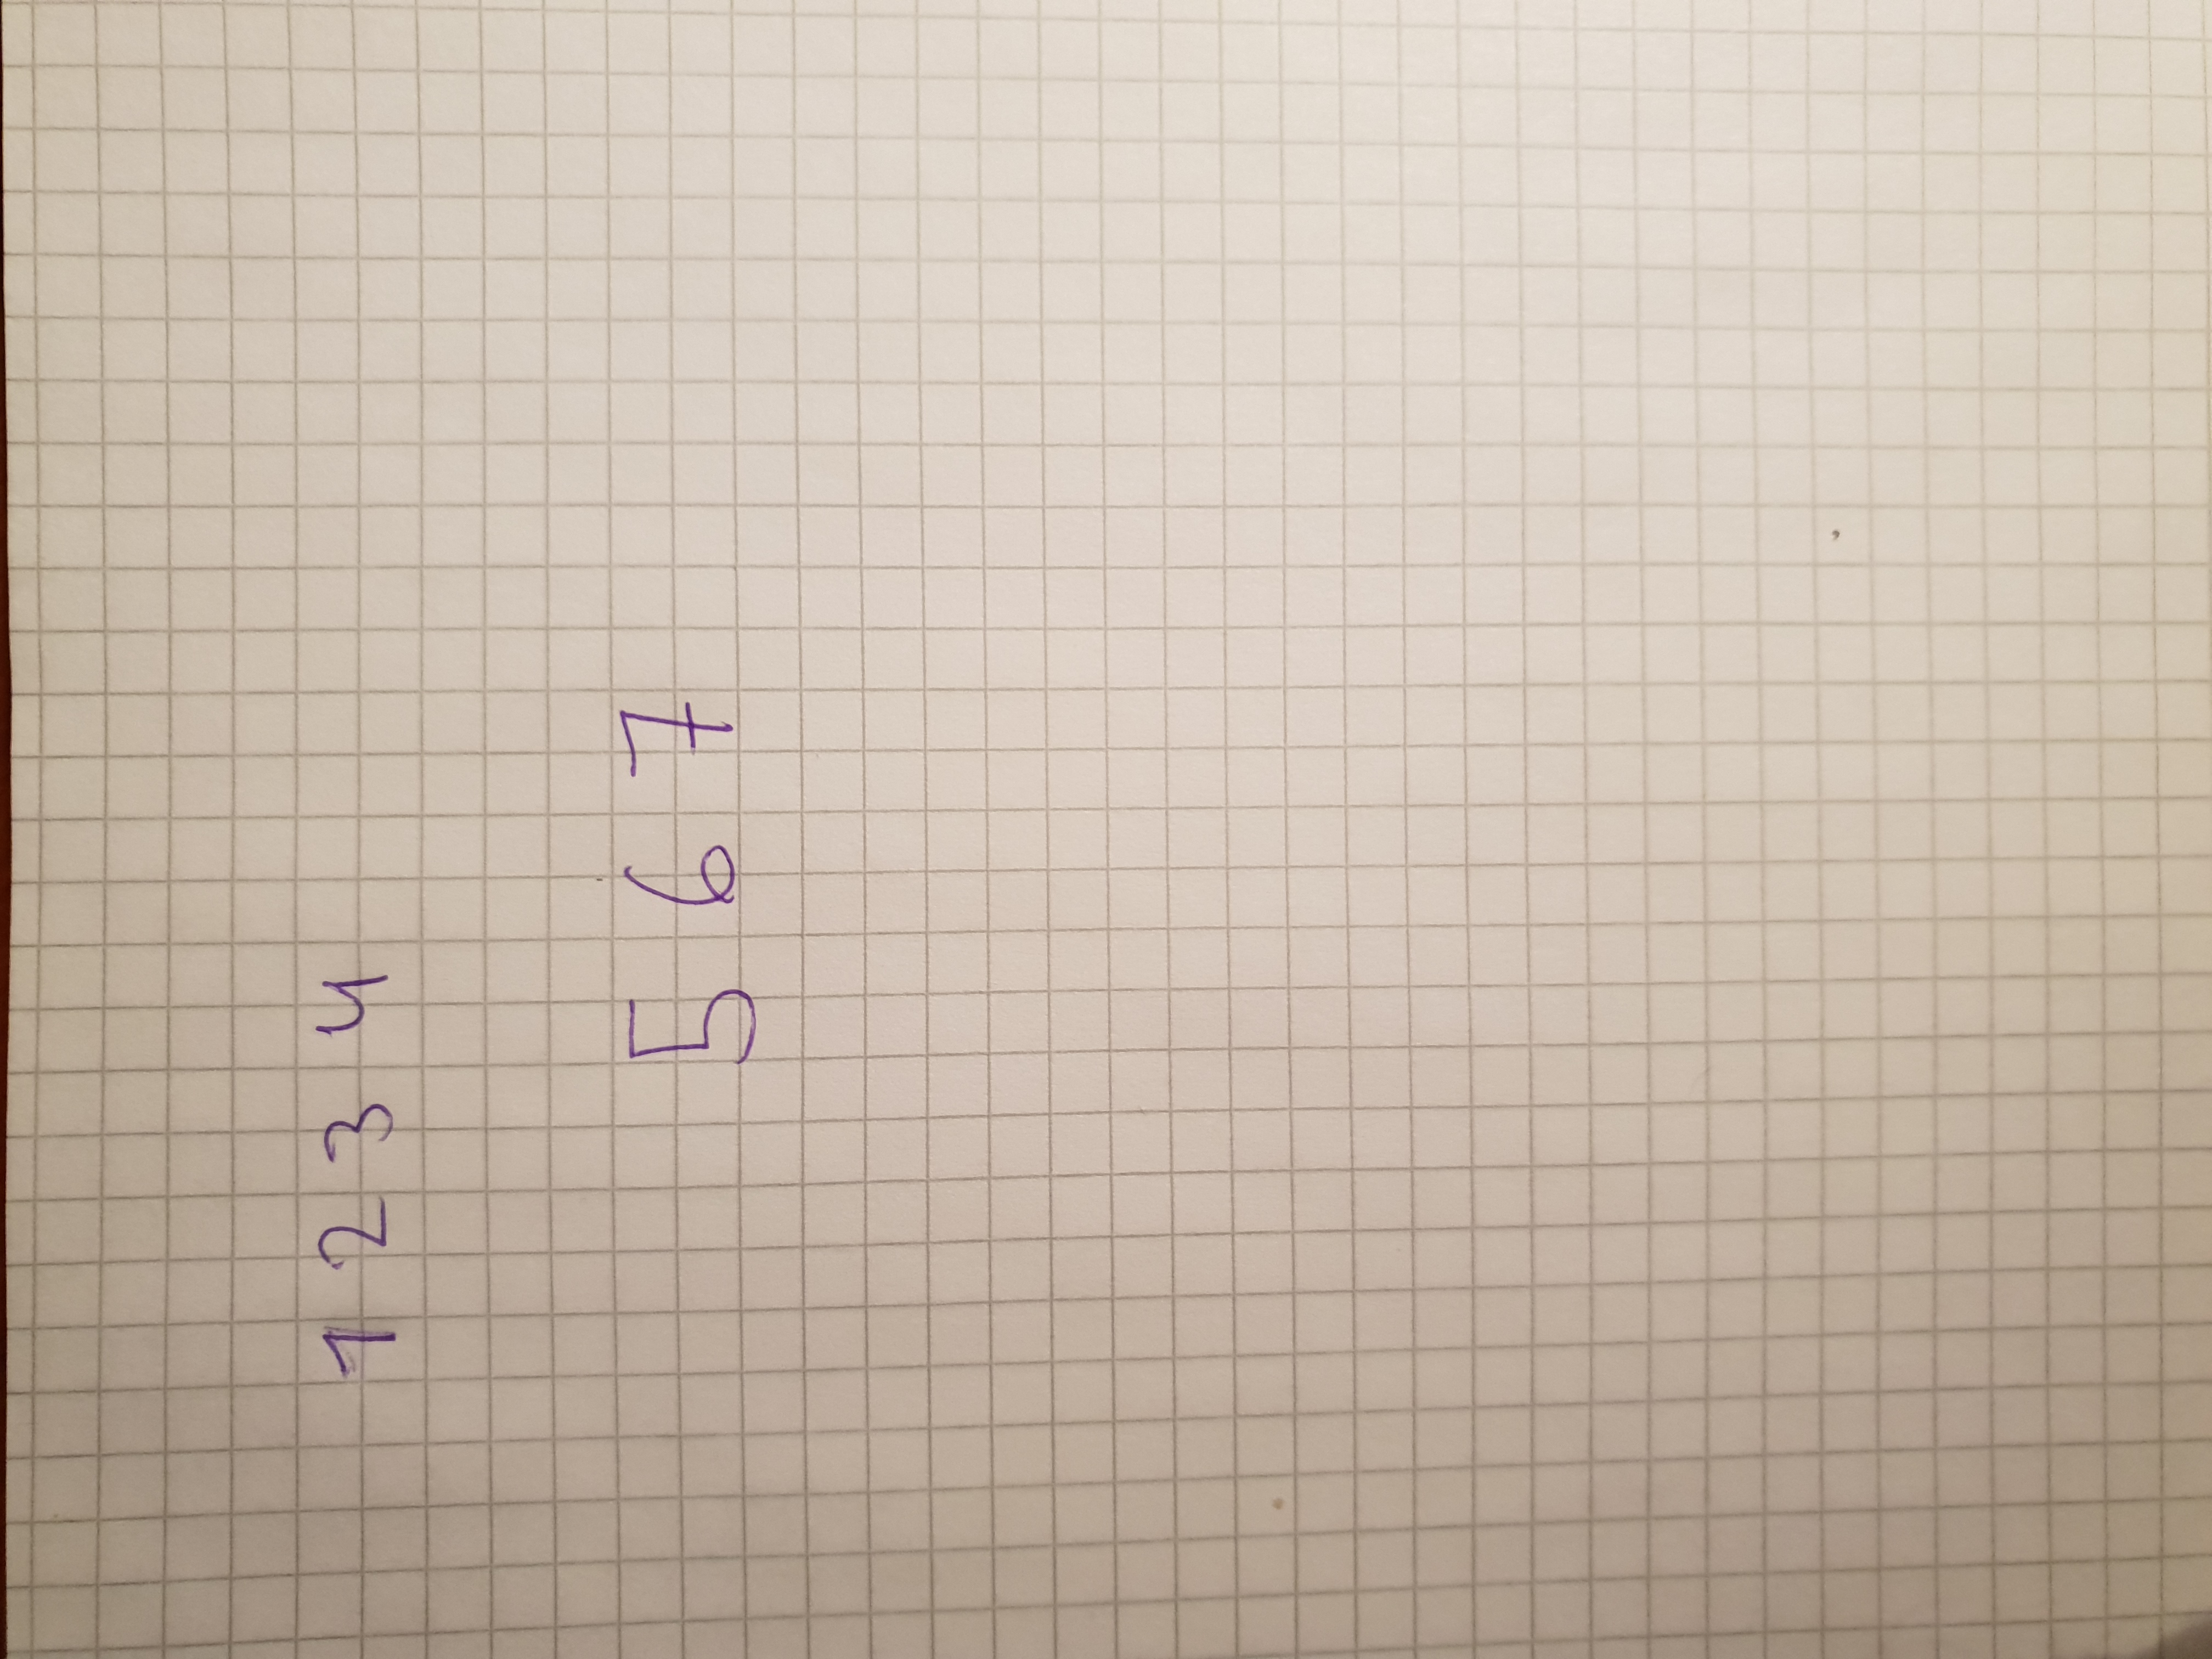 1 2 3 4
5 6 7